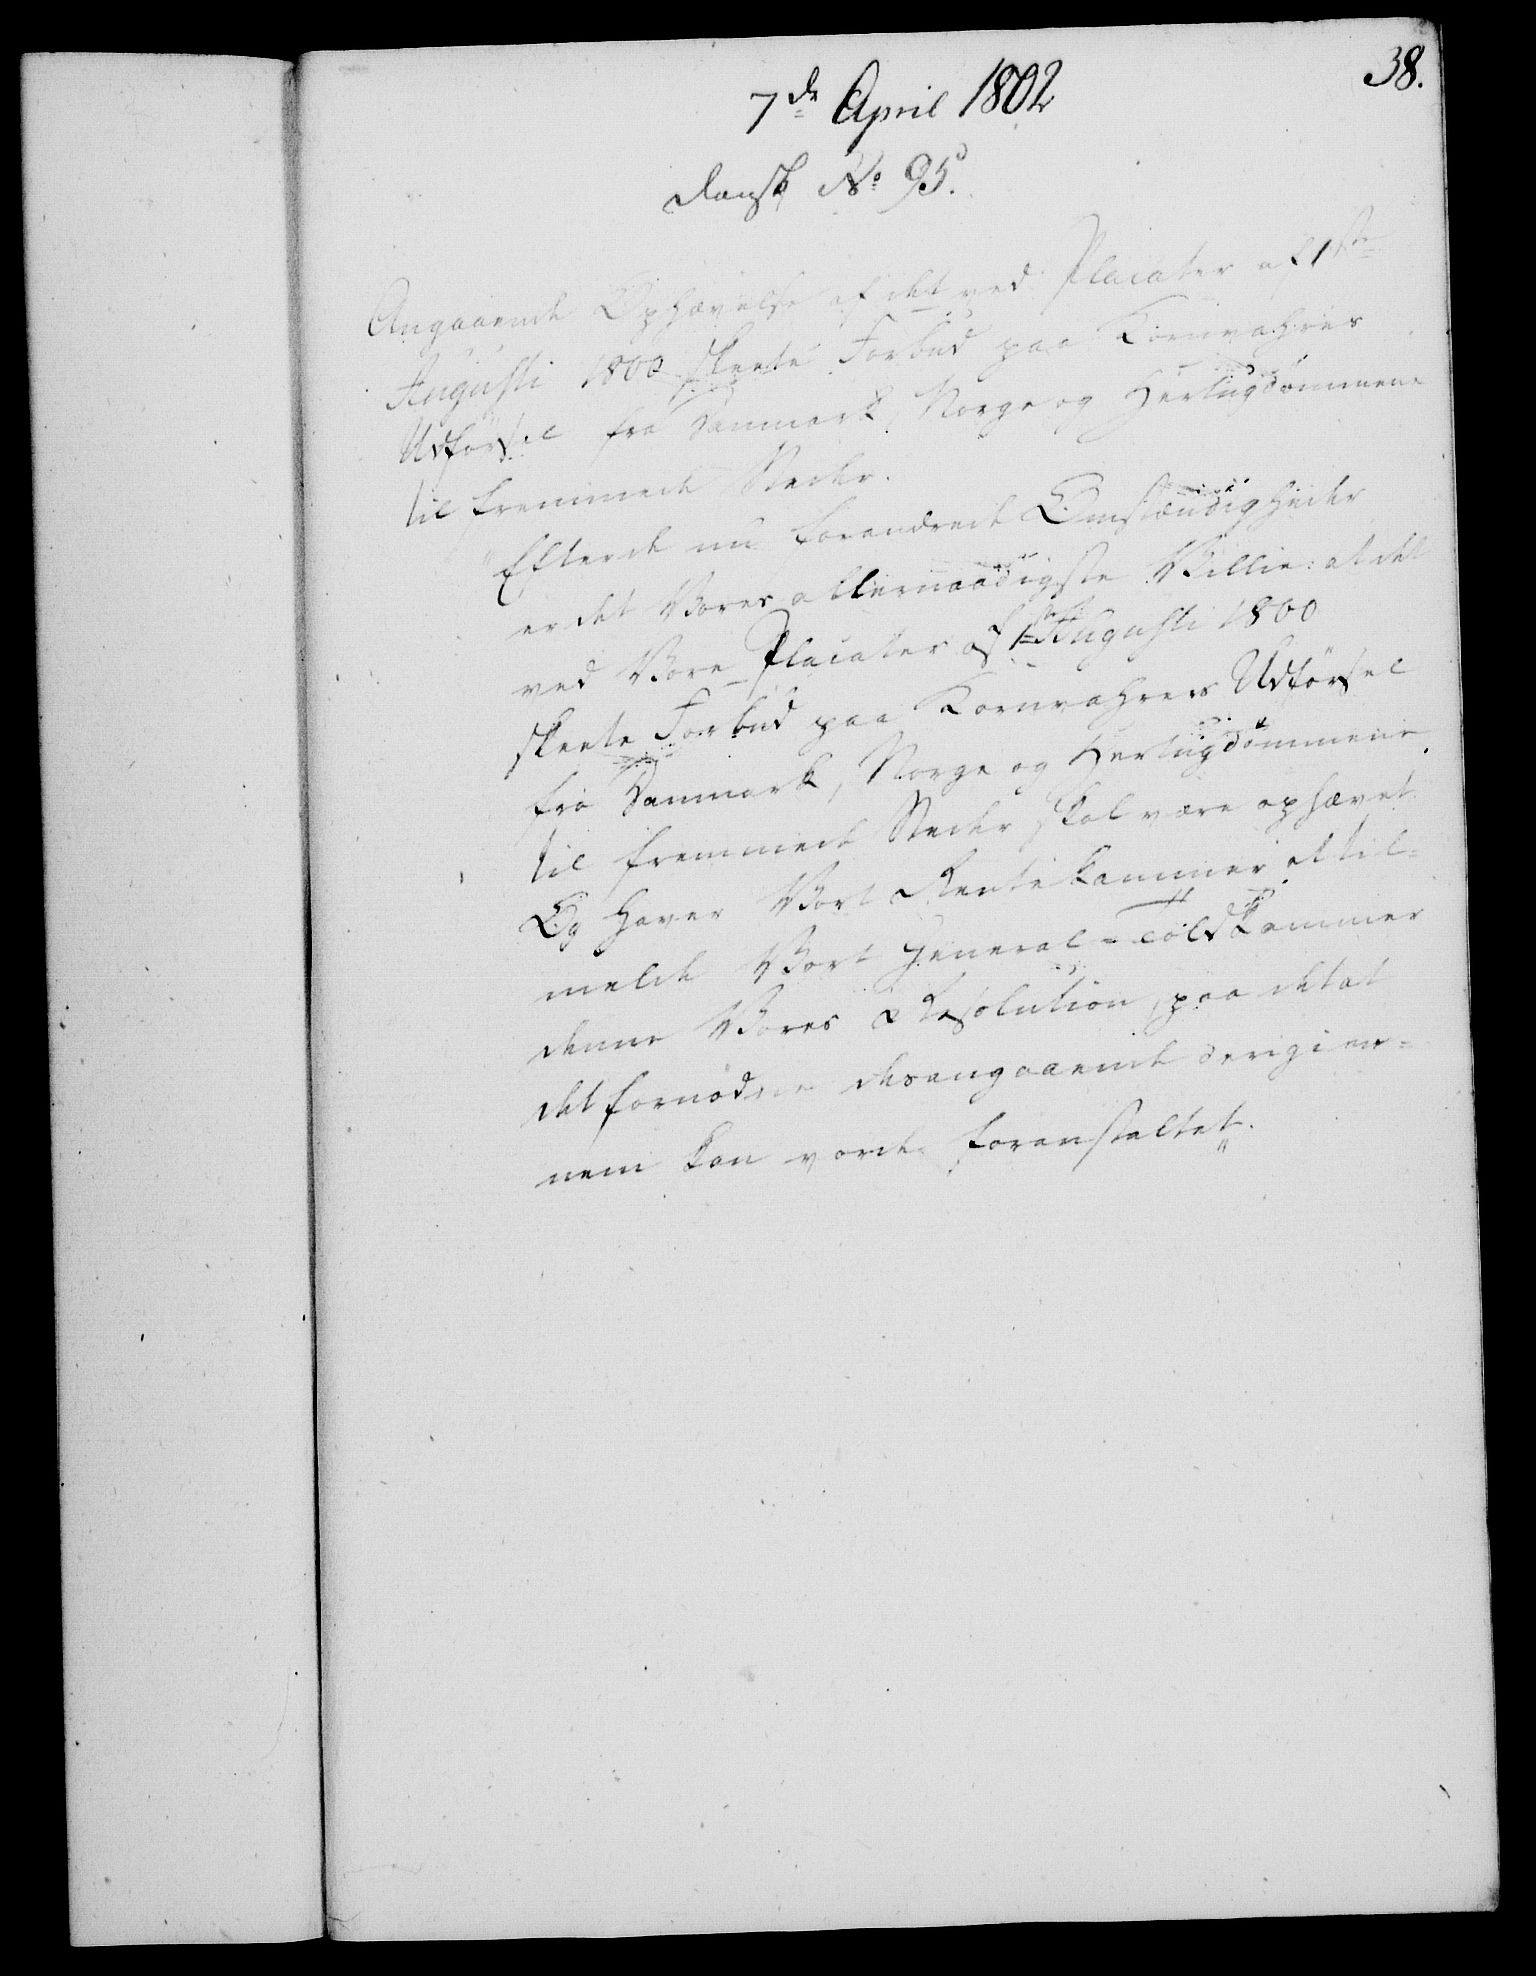 38.
7de April 1802
Dansk No 95.
Angaaende Ophævelse af det ved Placater af 1ste
Augusti 1800 skeete Forbud paa Kornvahres
Udførsel fra Danmark, Norge og Hertugdømmene
til fremmede Steder.
"Efter de nu forandrede Omstændigheder
er det Vores allernaadigste Villie: at det
ved Vore Placater af 1ste Augusti 1800
skeete Forbud paa Kornvahres Udførsel
fra Danmark, Norge og Hertugdømmene
til fremmede Steder skal være ophævet
Og haver Vort Rentekammer at til-
melde Vort General-Toldkammer
denne Vores Resolution, paa det at
det fornødne desangaaende derigien-
nem kan vorde foranstaltet."